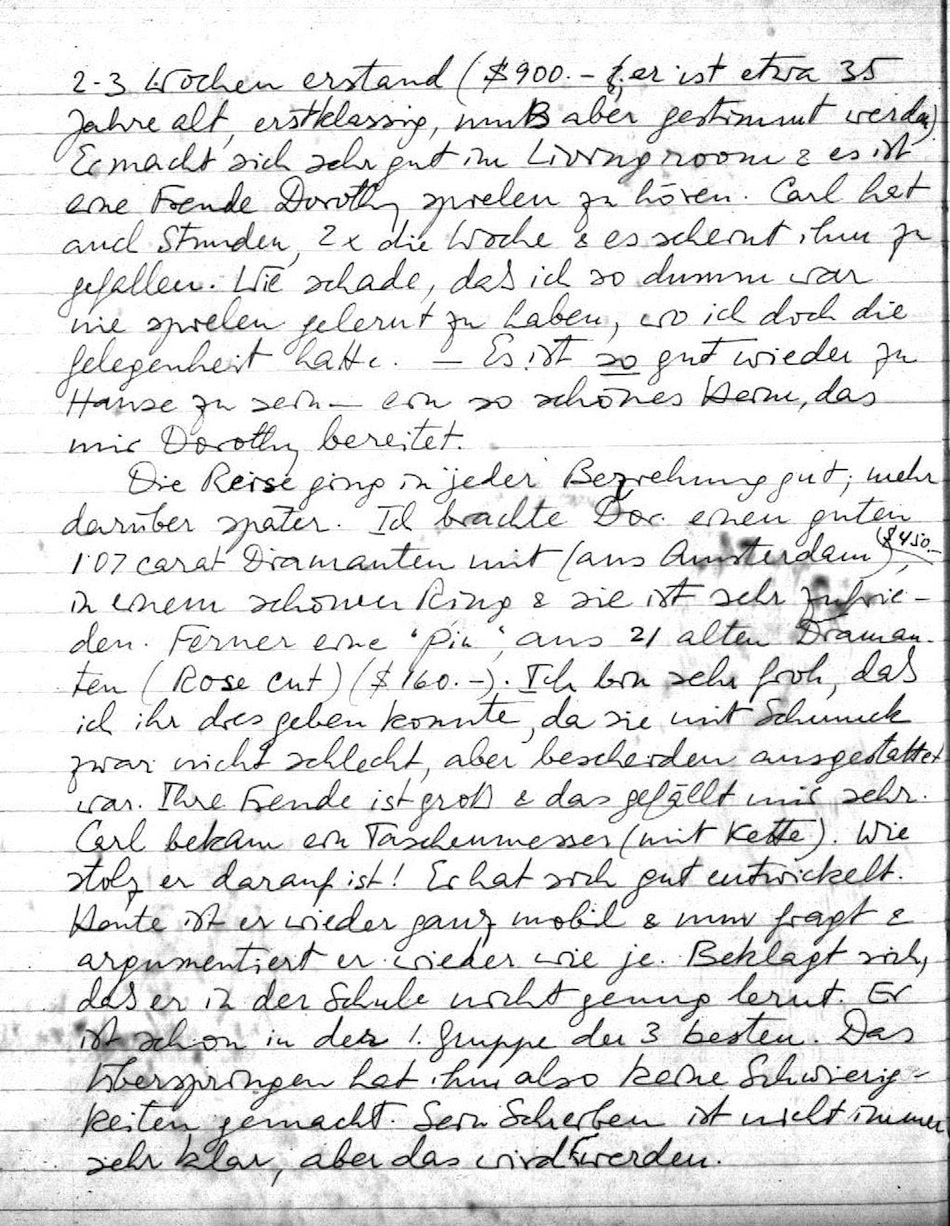 2-3 Wochen erstand ($900.- er ist etwa 35
Jahre alt, erstklassig, muß aber gestimmt werden)
Er macht sich sehr gut im Livingroom & es ist
eine Freude Dorothy spielen zu hören. Carl hat
auch Stunden, 2x die Woche & es scheint ihm zu
gefallen. Wie schade, daß ich so dumm war
nie spielen gelernt zu haben, wo ich doch die
Gelegenheit hatte. — Es ist so gut wieder zu
Hause zu sein — ein so schönes Heim, das
mir Dorothy bereitet.
Die Reise ging in jeder Beziehung gut; mehr
darüber später. Ich brachte Dor. einen guten
1.07 carat Diamanten mit (aus Amsterdam) ($450.-),
in einem schönen Ring & sie ist sehr zufrie-
den. Ferner eine "Pin", aus 21 alten Diaman-
ten (Rose cut) ($160.-). Ich bin sehr froh, daß
ich ihr dies geben konnte, da sie mit Schmuck
zwar nicht schlecht, aber bescheiden ausgestattet
war. Ihre Freude ist groß & das gefällt mir sehr.
Carl bekam ein Taschenmesser (mit Kette). Wie
stolz er darauf ist! Er hat sich gut entwickelt.
Heute ist er wieder ganz mobil & nun fragt &
argumentiert er wieder wie je. Beklagt sich,
daß er in der Schule nicht genug lernt. Er
ist schon in der 1. Gruppe der 3 besten. Das
Überspringen hat ihm also keine Schwierig-
keiten gemacht. Sein Schreiben ist nicht immer
sehr klar, aber das wird werden.